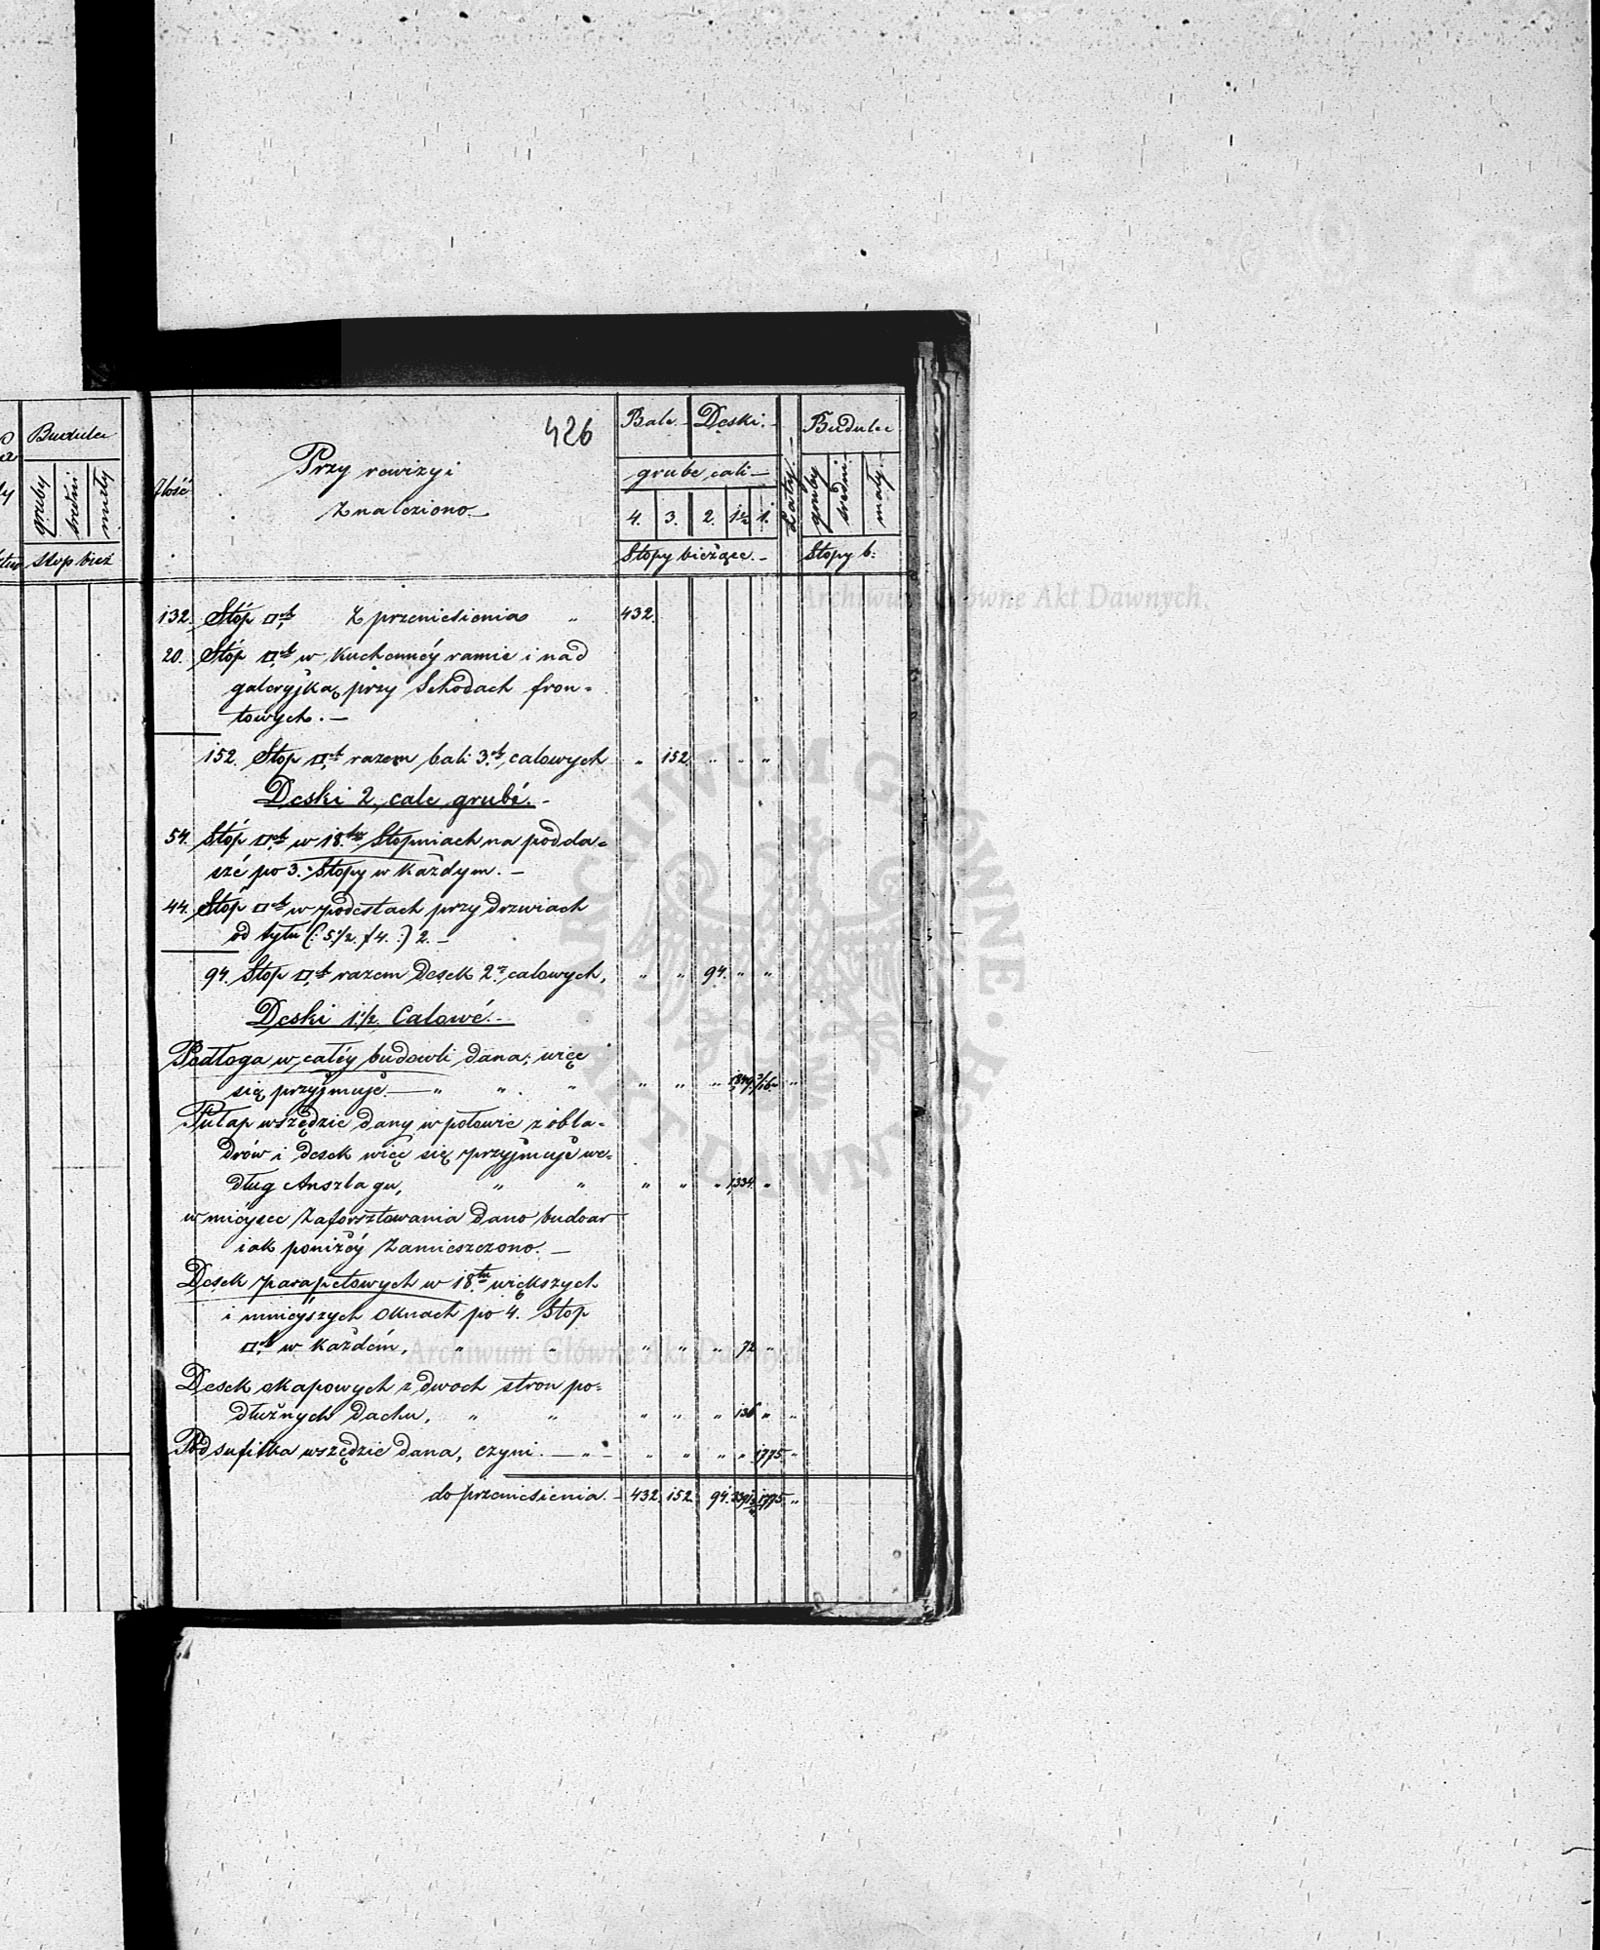 Budulec
gruby
średni
mały
stop bież
426
Ilość
Przy rewizyi
Znaleziono.
Bale. Deski.
grube cali
4. 3. 2. 1½ 1.
Stopy bieżące.
Łaty.
Budulec
gruby
średni
mały.
Stopy b:
132. Stóp □ch Z przeniesienia „ 432.
20. Stóp □ch w Kuchennéy ramie i nad
galeryjką przy Schodach fron=
towych. —
152. Stop □ch razem bali 3ch calowych „ 152 „ „ „
Deski 2 cale grubé. -
54. Stóp □ch w 18tu Stopniach na podda=
szé po 3. Stopy w każdym. —
44. Stóp □ch w podestach przy drzwiach
od tyłu (: 5½ / 4. :) 2. —
94. Stop □ch razem Desek 2. calowych, „ „ 94. „ „
Deski 1½ Calowé. -
Podłoga w całéy budowli dana, więc
się przyjmuje. — „ „ „ „ „ „
Pułap wszędzie dany w połowie z obla=
drów i desek więc się przyjmuje we=
dług Anszlagu, „ „ „ „ „ 1334. „
w mieysce Zaforsztowania dano budoar
iak poniżéy Zamieszczono. —
Desek parapetowych w 18tu większych
i mnieyszych oknach po 4. Stóp
□ch w każdém, „ „ „ „ „ 72 „
Desek okapowych z dwoch stron po=
dłużnych Dachu, „ „ „ „ „ 136 „ „
Podsufitka wszędzie dana, czyni. — „ — „ „ „ „ 1775. „
do przeniesienia. — 432. 152. 94. 1775. „
Archiwum Główne Akt Dawnych
ARCHIWUM GŁÓWNE · AKT DAWNYCH ·
Archiwum Główne Akt Dawnych